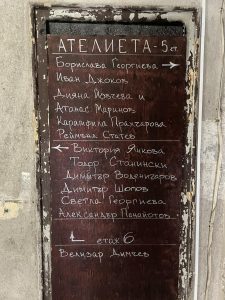 АТЕЛИЕТА - 5 ет.
Борислава Георгиева →
Иван Джоков
Дияна Йовчева и
Атанас Маринов
Карамфила Прахчарова
Реймонд Статев
← Виктория Янкова
Тодор Станински
Димитър Воденичаров
Димитър Шопов
Светла Георгиева
Александър Панайотов
етаж 6
Велизар Димчев